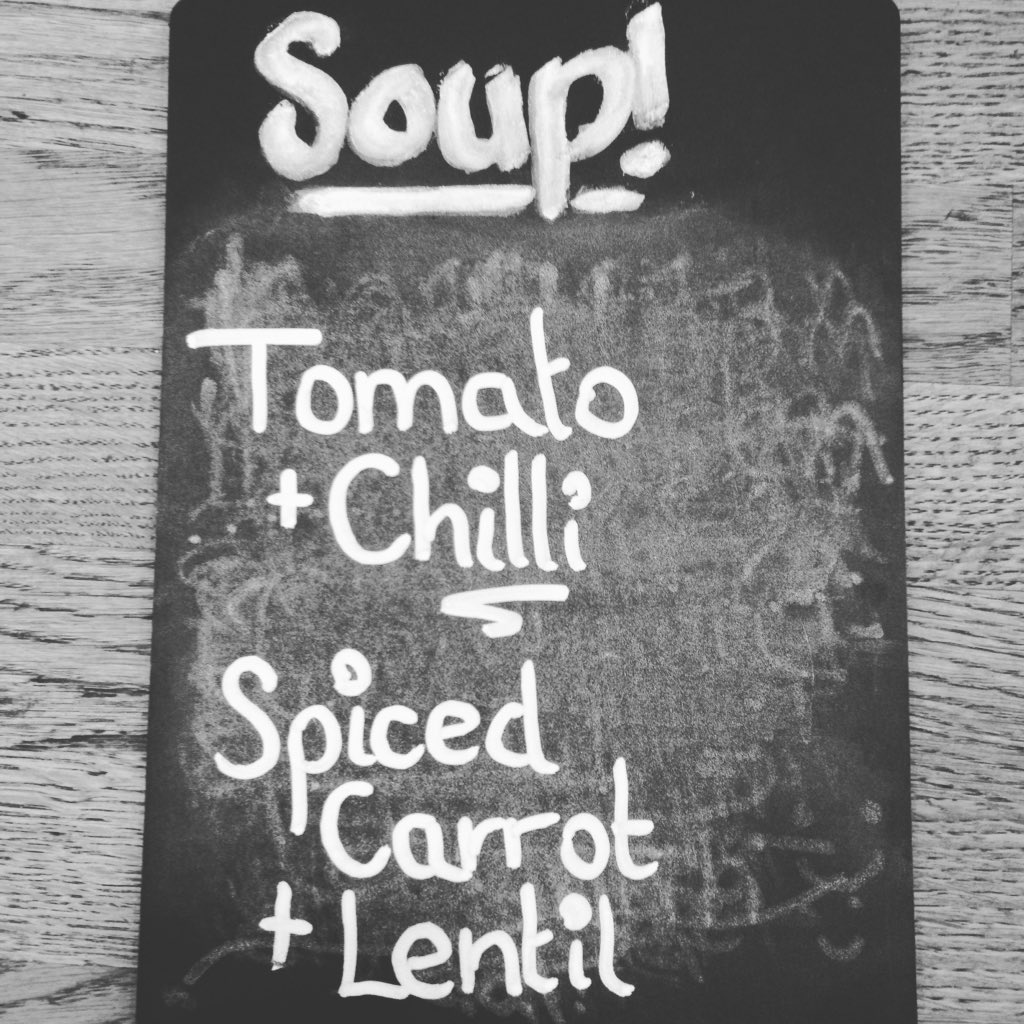 Soup!
Tomato
+ Chilli
Spiced
Carrot
+ Lentil